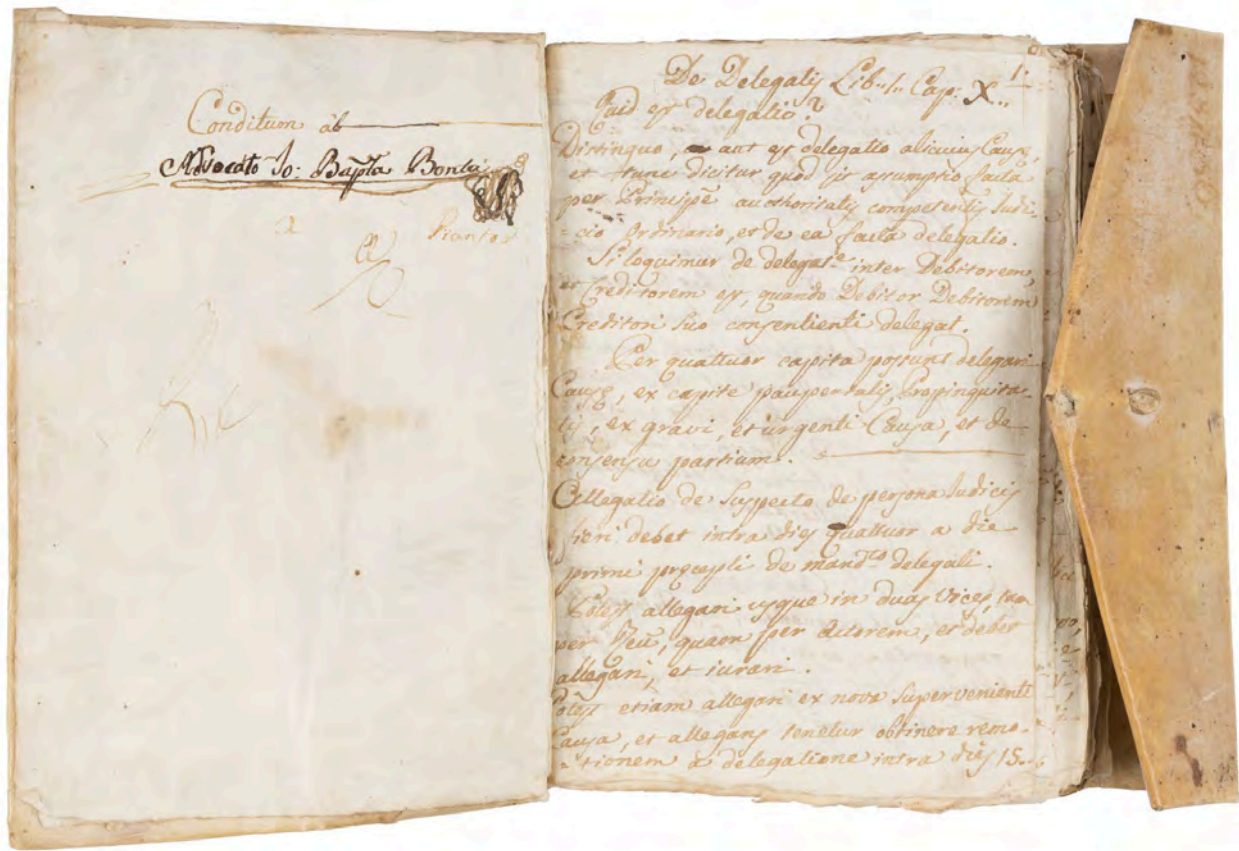 Conditum ab
Advocato Jo: Bapta Bonta
a
Piantos
1.
De Delegatis Lib. 1. Cap: X..
Quid est delegatio?
Distinguo, aut est delegatio alicuius Causæ,
et tunc dicitur quod sit assumptio facta
per Principē authoritatis competentis Iudi
=cio Ordinario, et de ea facta delegatio.
Si loquimur de delegat.e inter Debitorem,
et Creditorem est, quando Debitor Debitorem
Creditori suo consentienti delegat.
Per quattuor capita possunt delegari
Causę, ex capite paupertatis, Propinquita-
tis, ex gravi, et urgenti Causa, et de
consensu partium.
Allegatio de suspecto de persona Iudicis
fieri debet intra dies quattuor a die
primi pręcepti de mand.to delegati.
Potest allegari usque in duas vices, tam
per Reū, quam per Actorem, et debet
allegari, et iurari.
Potest etiam allegari ex nova superveniente
Causa, et allegans tenetur obtinere remo-
=tionem a delegatione intra dies 15..